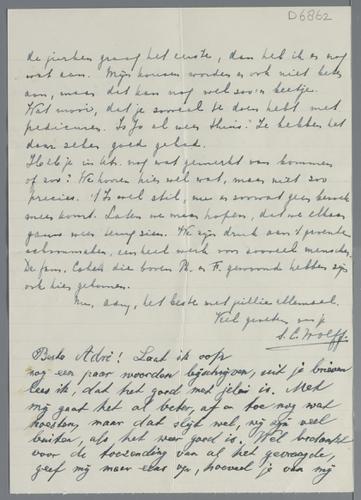 D6862
de jurken graag het eerste, dan heb ik er nog
wat aan. Mijn kousen worden er ook niet beter
om, maar dat kan nog wel zoo'n beetje.
Wat mooi, dat je zooveel te doen hebt met
pedicuren. Is Jo al weer thuis? Ze hebben het
daar zeker goed gehad.
Heb je in nog wat gemerkt van bommen
of zoo? We hooren hier wel wat, maar niet zoo
precies. 't Is wel stil, nu er zoowat geen bezoek
meer komt. Laten we maar hopen, dat we elkaar
gauw weer terug zien. We zijn druk aan 't groente
schoonmaken, een heel werk voor zooveel menschen.
De fam. die boven en gewoond hebben zijn
ook hier gekomen.
Nu, dag, het beste met jullie allemaal.
Veel groeten van je
S. E. Wolff.
Beste Adré! Laat ik oop
nog een paar woorden bijschrijven, uit je brieven
lees ik, dat het goed met jelui is. Met
mij gaat het al beter, af en toe nog wat
hoesten, maar dat slijt wel, wij zijn veel
buiten, als het weer goed is. Wel bedankt
voor de toezending van al het gevraagde,
geef mij maar eens op, hoeveel je van mij